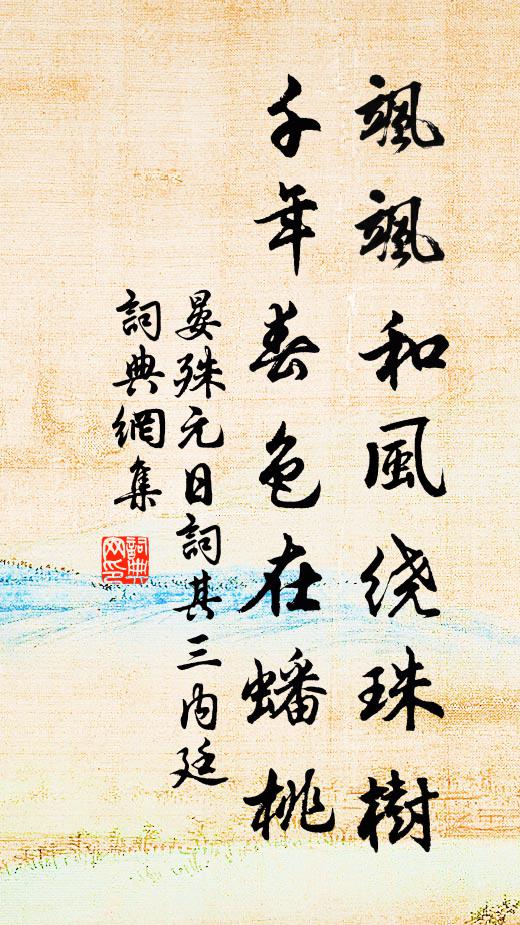 飒飒和風绕珠樹
千年春色在蟠桃
晏殊元日詞其三内廷
詞典網集
詞典网印